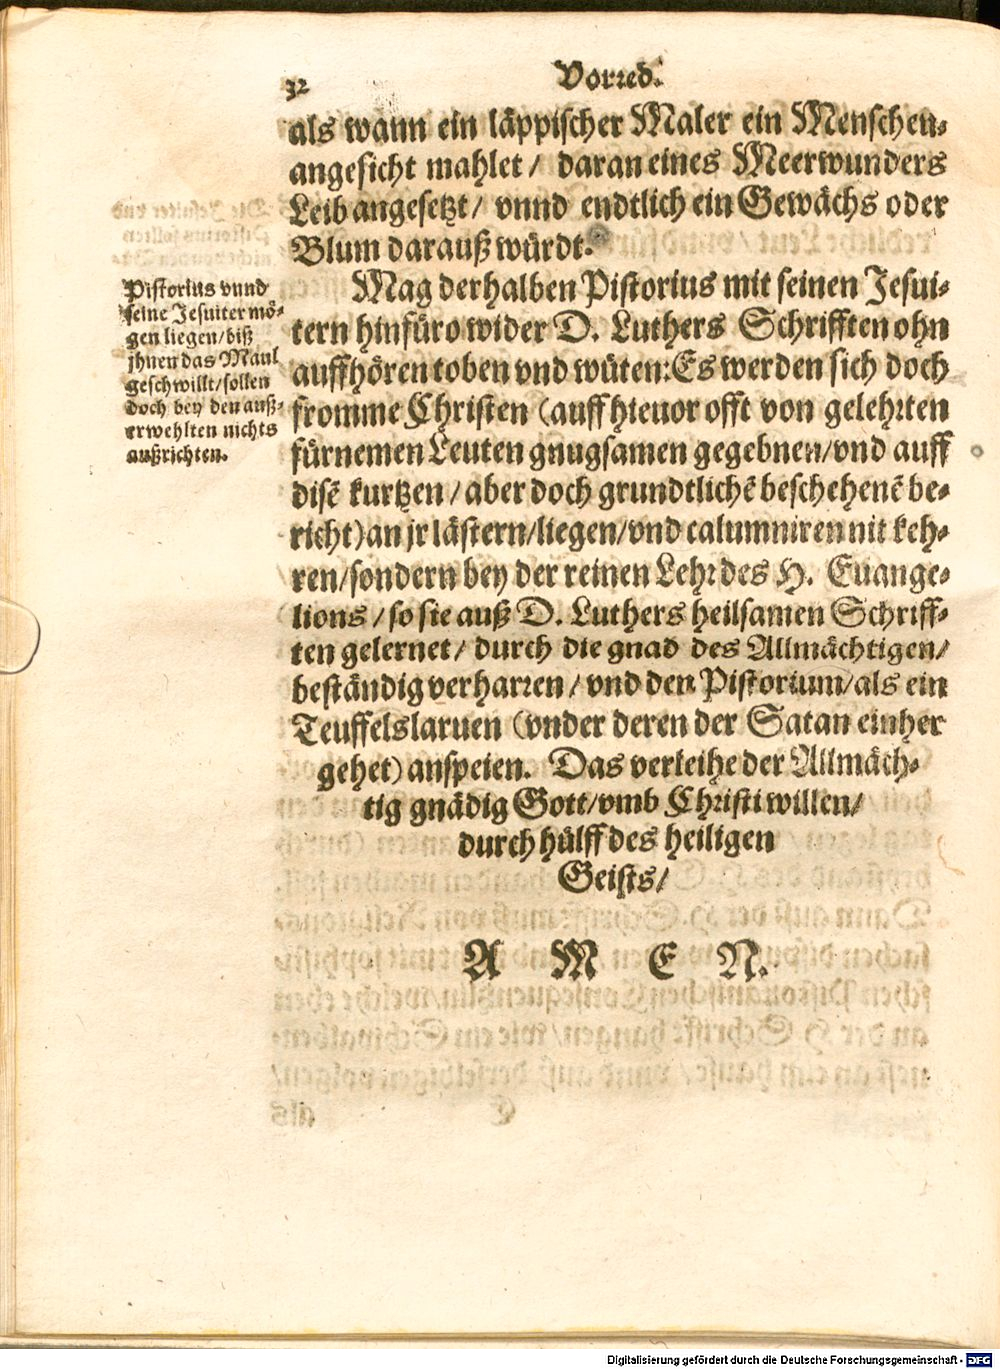 32 Vorred.
als wann ein läppischer Maler ein Menschen-
angesicht mahlet / daran eines Meerwunders
Leib angesetzt / vnnd endtlich ein Gewächs oder
Blum darauß würdt.
Pistorius vnnd
seine Jesuiter mö-
gen liegen/biß
jhnen das Maul
geschwillt/sollen
doch bey den auß-
erwehlten nichts
außrichten.
Mag derhalben Pistorius mit seinen Jesui-
tern hinfüro wider D. Luthers Schrifften ohn
auffhören toben vnd wüten: Es werden sich doch
fromme Christen (auff hieuor offt von gelehrten
fürnemen Leuten gnugsamen gegebnen/vnd auff
disē kurtzen / aber doch grundtlichē beschehenē be-
richt) an jr lästern/liegen/vnd calumniren nit keh-
ren/sondern bey der reinen Lehr des H. Euange-
lions / so sie auß D. Luthers heilsamen Schriff-
ten gelernet / durch die gnad des Allmächtigen/
beständig verharren / vnd den Pistorium/als ein
Teuffelslaruen (vnder deren der Satan einher
gehet) anspeien. Das verleihe der Allmäch-
tig gnädig Gott/vmb Christi willen/
durch hülff des heiligen
Geists/
A M E N.
Digitalisierung gefördert durch die Deutsche Forschungsgemeinschaft - DFG